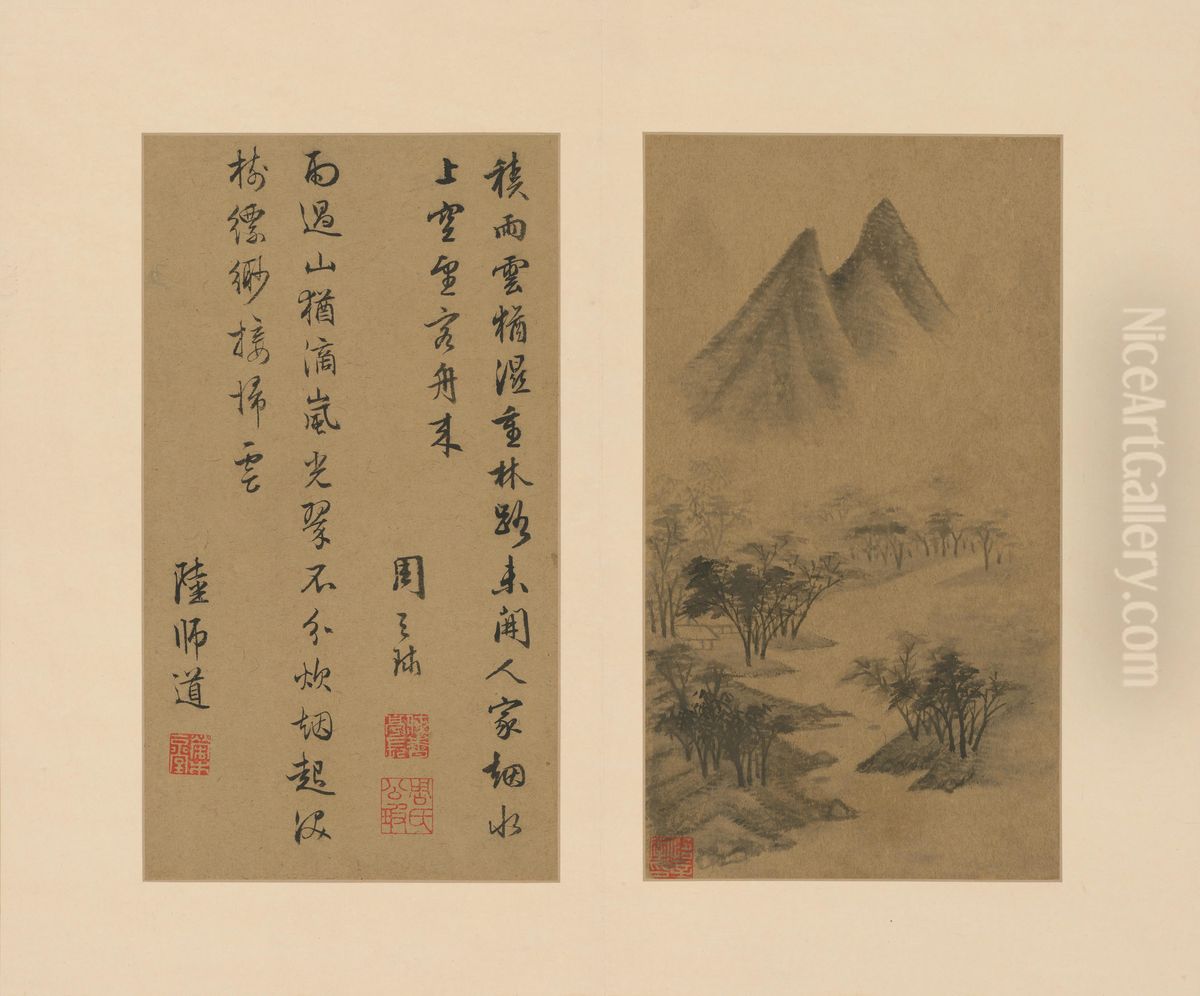 積雨雲猶濕重林路未開人家烟水
上空望客舟來
周天球
雨過山猶滴嵐光翠不分炊烟起汲
樹縹緲接歸雲
陸師道
周氏
公瑕
NiceArtGallery.com